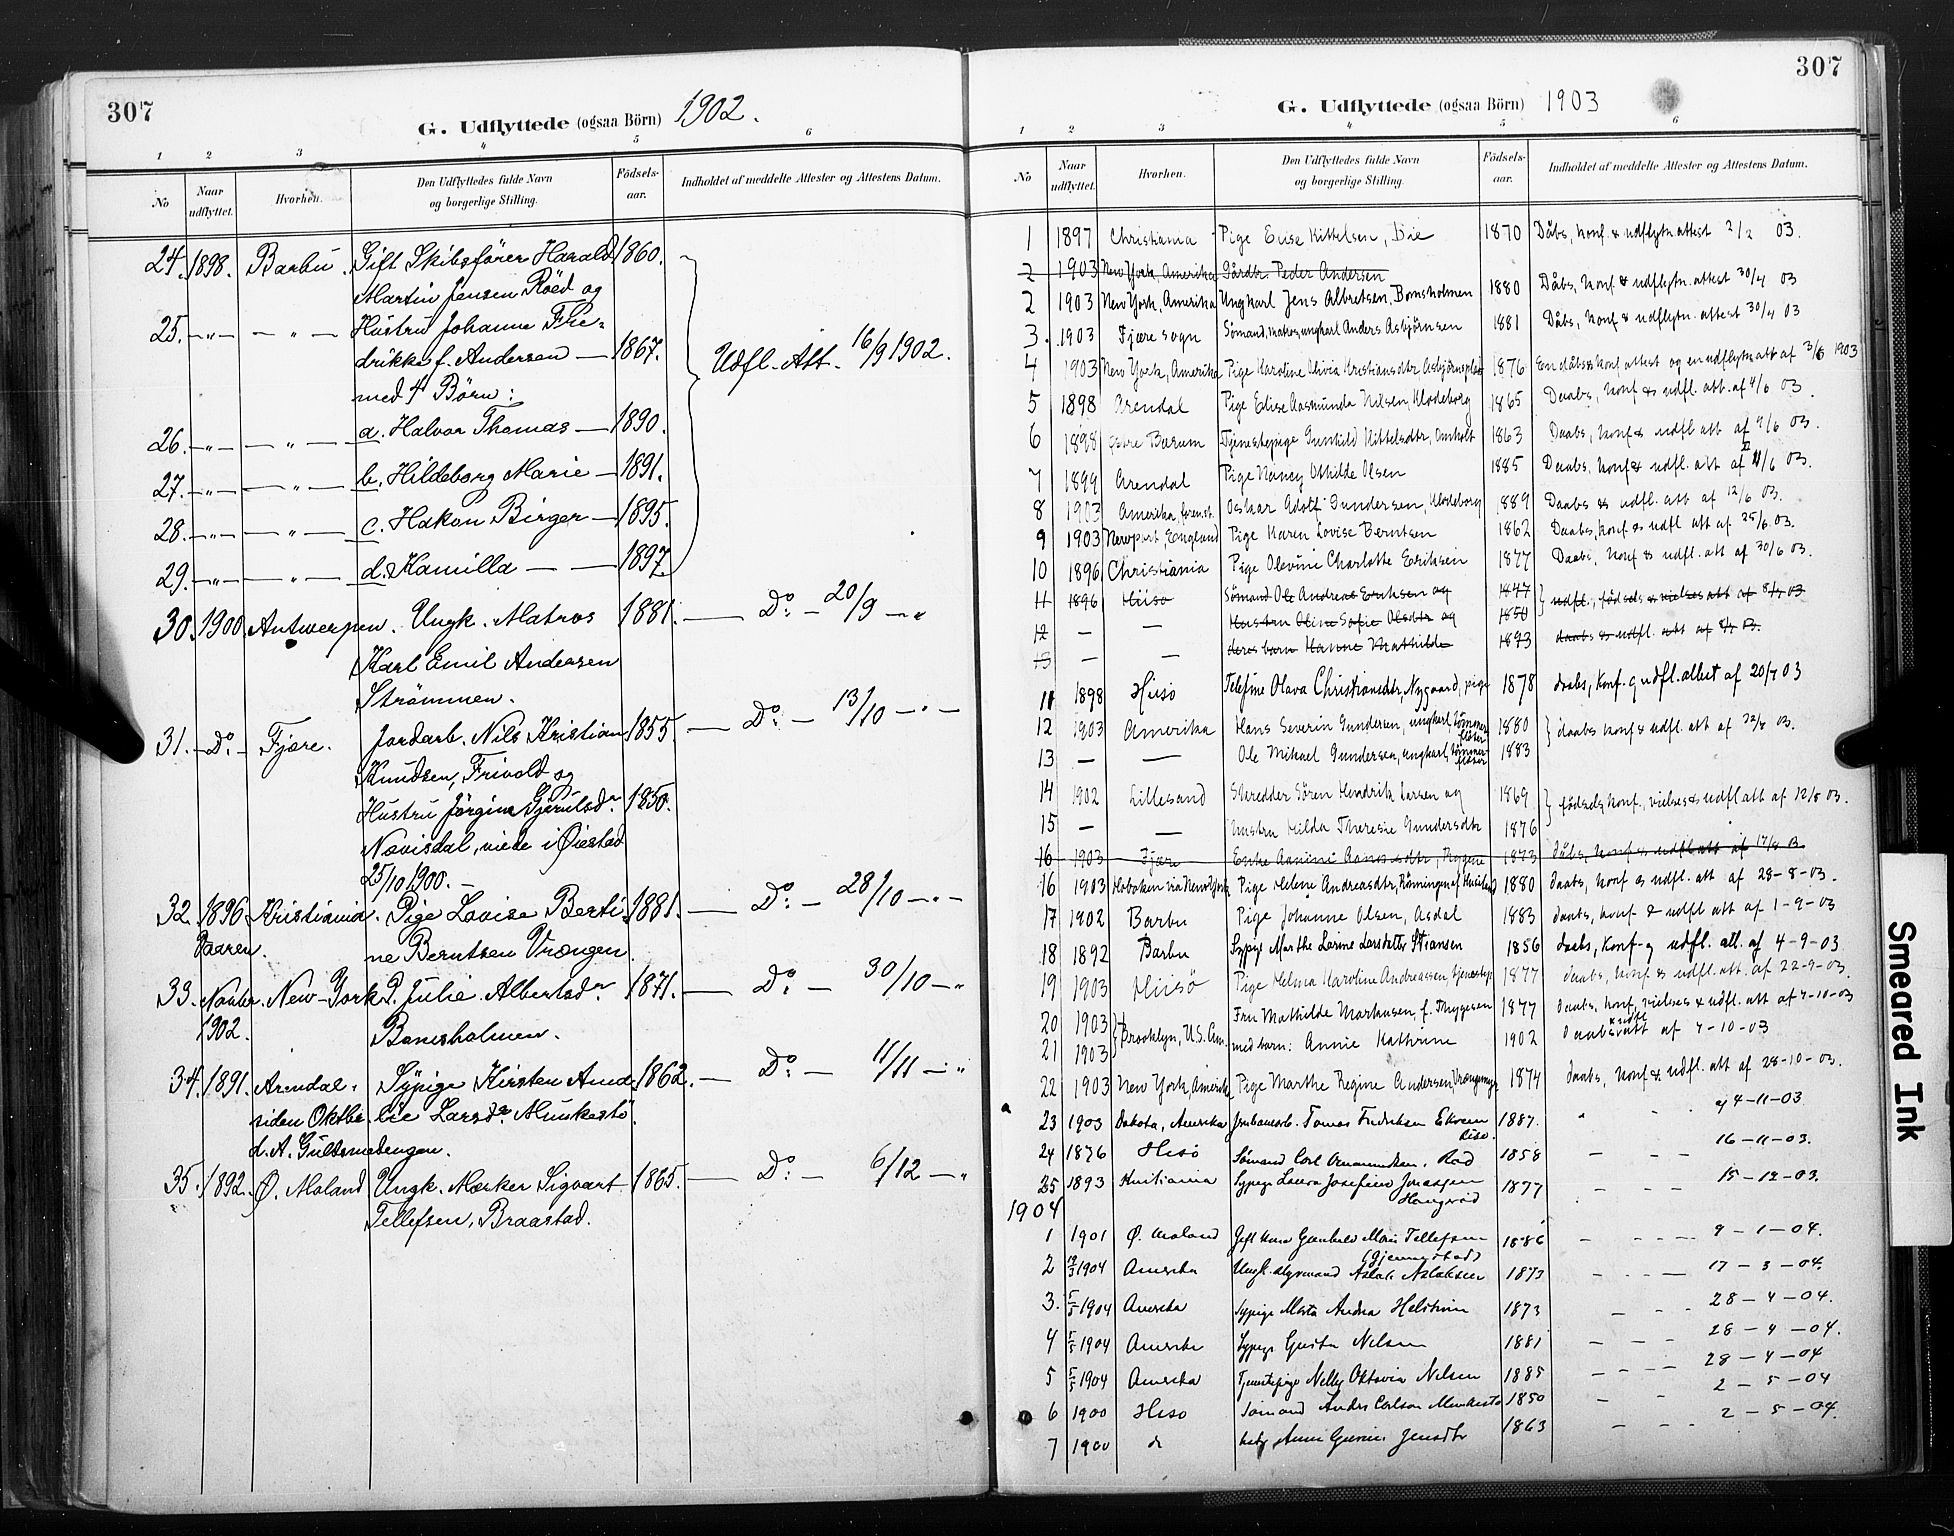 307
G. Udflyttede (ogsaa Börn) 1902.
1 2 3 4 5 6
No Naar udflyttet. Hvorhen. Den Udflyttedes fulde Navn og borgerlige Stilling. Födsels-aar. Indholdet af meddelte Attester og Attestens Datum.
24. 1898. Barbu. Gift Skibsfører Harald 1860.
Martin Jensen Röed og
25. -"- - " - Hustru Johanne Fre-
drikke f. Andersen - 1867. Udfl. Att. 16/9 1902.
med 4 Börn:
26. -"- - " - a. Halvor Thomas - 1890.
27. -"- - " - b. Hildeborg Marie - 1891.
28. -"- - " - c. Hakon Birger - 1895.
29. -"- - " - d. Kamilla - - 1897.
30. 1900. Antwerpen. Ungk. Matros 1881. - Do: - 20/9 - "
Karl Emil Andersen
Strømmen.
31. -Do- Fjære. Jordarb. Nils Kristian 1855. - Do: - 13/10 - " -
Knudsen, Frivold og
Hustru Jörgine Gjerulsdr. 1850.
Nævisdal, viede i Øiestad
25/10 1900. -
32. 1896. Kristiania. Pige Lovise Berti- 1881. - Do: - 28/10 - " -
Vaaren. ne Berntsen Vrængen.
33. Novbr. New-York P. Julie Albertsdr 1871. - Do: - 30/10 - "
1902. Bomsholmen.
34. 1891. Arendal. Sypige Kirsten Ama- 1862. - Do: - 11/11 - "
siden Oktbr. lie Larsdr Munkestö.
d. A. Gultsmedengen.
35. 1892. Ø. Moland Ungk. Mærker Sigvart 1865. - Do: - 6/12 - "
Tellefsen, Braastad.
307
G. Udflyttede (ogsaa Börn) 1903
1 2 3 4 5 6
No Naar udflyttet. Hvorhen. Den Udflyttedes fulde Navn og borgerlige Stilling. Födsels-aar. Indholdet af meddelte Attester og Attestens Datum.
1 1897 Christiania Pige Elise Kittelsen, Bie 1870 Dåbs, konf. & udflytn attest 2/2 03.
2 1903 New York, Amerika Gårdbr. Peder Andersen
2 1903 New York, Amerika Ungkarl Jens Albretsen, Bomsholmen 1880 Dåbs, konf & udflytn. attest 30/4 03
3. 1903 Fjære sogn Sömand, ungkarl Anders Asbjörnsen 1881 Dåbs, konf & udflytn. attest 30/4 03
4 1903 New York, Amerika Pige Karoline Olivia Kristiansdtr Asbjörnsplas 1876 En dåbs & konf attest og en udflytn att af 3/6 1903
5 1898 Arendal Pige Edise Aasmunda Nilsen, Klodeborg 1865 Daabs, konf & udfl. att. af 4/6 03.
6 1898 Østre Bærum Tjenestepige Gunhild Kittelsdtr, Omholt 1863 Daabs, konf & udfl att af 9/6 03.
7 1899 Arendal Pige Nancy Othilde Olsen 1885 Daabs, konf & udfl. att af 11/6 03.
8 1903 Amerika, foren.st. Oskar Adolf Gundersen, Klodeborg 1889 Daabs & udfl. att af 12/6 03.
9 1903 Newport, England Pige Karen Lovise Berntsen 1862 Daabs, konf & udfl att af 25/6 03.
10 1896 Christiania Pige Olevine Charlotte Eriksen 1877 Daabs, konf & udfl. att af 30/6 03.
11 1896 Hisö Sömand Ole Andreas Eriksen og 1847 udfl., födsels & vielses att af 8/7 03
12 - - Hustru Oline Sofie Olsdtr og 1850
13 - - deres barn Hanne Mathilde 1893 daabs & udfl. att af 8/7 03.
11 1898 Hisö Telefine Olava Christiansdtr, Nygaard, pige 1878 daabs, konf. og udfl. attest af 20/7 03
12 1903 Amerika Hans Severin Gundersen, ungkarl, tömmerflöter 1880 daabs konf & udfl. att af 22/7 03.
13 - - Ole Mikael Gundersen, ungkarl, tömmerflöter 1883
14 1902 Lillesand Skredder Sören Hendrik Larsen og 1869 födsels, konf, vielses & udfl att af 12/8 03.
15 - - hustru Hilda Theresie Gundersdtr 1876
16 1903 Fjære Enke Aanine Aanonsdtr, Rygene 1873 dåbs, konf & udfl att af 17/8 03
16 1903 Hoboken via New York Pige Helene Andreasdtr, Rönningen af 1880 daabs, konf & udfl. att af 28-8-03.
17 1902 Barbu Pige Johanne Olsen, Asdal 1883 daabs, konf & udfl att af 1-9-03
18 1892 Barbu Sypige Marthe Larine Larsdatter Stiansen 1856 daabs, konf. og udfl. att. af 4-9-03
19 1903 Hisö Pige Helma Karoline Andreassen, tjenestep. 1877 daabs, konf & udfl. att. af 22-9-03.
20 1903 Fru Mathilde Markusen, f. Thygesen 1877 daabs, konf, vielses & udfl. att af 7-10-03
21 1903 Brooklyn, U.S. Am. med barn: Annie Kathrine 1902 Daabs & udfl att af 7-10-03
22 1903 New York, Amerika Pige Marthe Regine Andersen, 1874 daabs, konf & udfl. att af 28-10-03.
23 1903 Dakota, Amerika Jernbanearb. Tomas Fredriksen 1887. " - - af 4-11-03
24 1876 Hisö Sömand Carl Rød 1858 - - - 16-11-03.
25 1893 Kristiania Sypige Laura Josefine Jonassen 1877 - - - 15-12-03.
1904
1 1901 Ø. Moland Gift kone Gunhild Marie Tellefsen (Gjennestad) 1886 - - - - 9-1-04.
2 12/3 1904 Amerika Ungk. Aslak Aslaksen 1873 - - - - 17-3-04.
3. 5/5 1904 Amerika Sypige Marta Andrea 1873 - - - 28-4-04.
4 5/5 1904 Amerika Sypige Gusta Nilsen 1881 - - - 28-4-04.
5 5/5 1904 Amerika Tjenestepige Nelly Oktavia Nilsen 1885 - - - - 28-4-04
6 1900 Hisö Sömand Anders Carlson 1850 - - 2-5-04
7 1900 do Anne Jensdtr 1863 - - - 2-5-04.
Smeared Ink